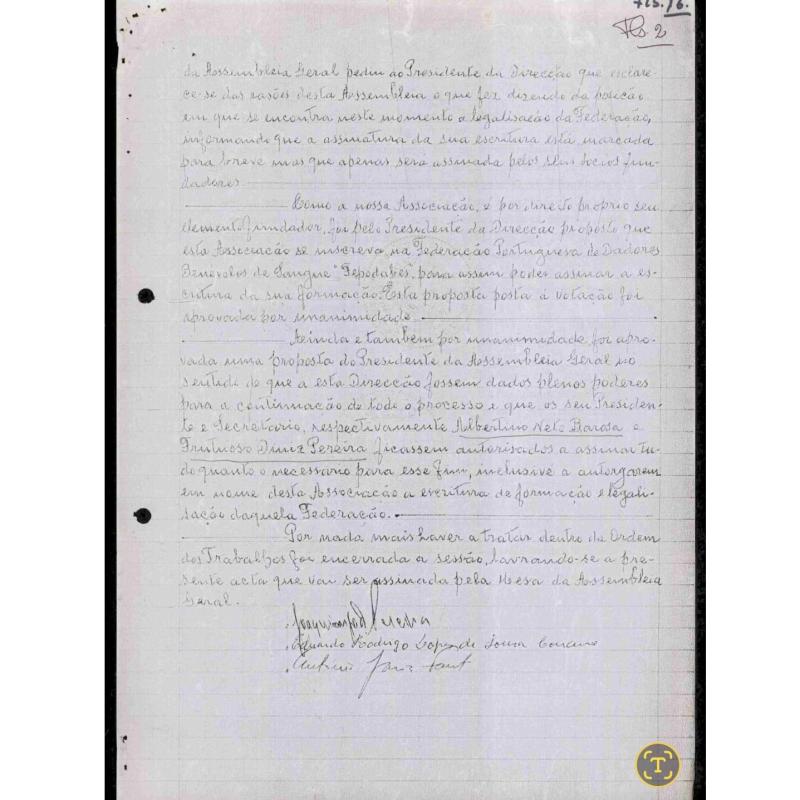 Fls. 16.
Fls. 2
da Assembleia Geral pediu ao Presidente da Direcção que esclare-
ce-se das rasões desta Assembleia o que fez dizendo da posição
em que se encontra neste momento a legalisação da Federação,
informando que a assinatura da sua escritura está marcada
para breve mas que apenas será assinada pelos seus socios fun-
dadores.
Como a nossa Associação, é por direito proprio seu
elemento fundador, foi pelo Presidente da Direcção proposto que
esta Associação se inscreva na Federação Portuguesa de Dadores
Benévolos de Sangue "Fepodabes", para assim poder assinar a es-
critura da sua formação. Esta proposta posta à votação foi
aprovada por unanimidade.
Ainda e também por unanimidade foi apro-
vada uma proposta do Presidente da Assembleia Geral no
sentido de que a esta Direcção fossem dados plenos poderes
para a continuação de todo o processo e que os seu Presiden-
te e Secretário, respectivamente Albertino Neto Barosa e
Frutuoso Diniz Pereira ficassem autorisados a assinar tu-
do quanto o necessário para esse fim, inclusivé a autorgarem
em nome desta Associação a escritura de formação e legali-
sação daquela Federação.
Por nada mais haver a tratar dentro da Ordem
dos Trabalhos foi encerrada a sessão, lavrando-se a pre-
sente acta que vai ser assinada pela Mesa da Assembleia
Geral.
Joaquim
Eduardo Rodrigo Lopes de Sousa
António
T